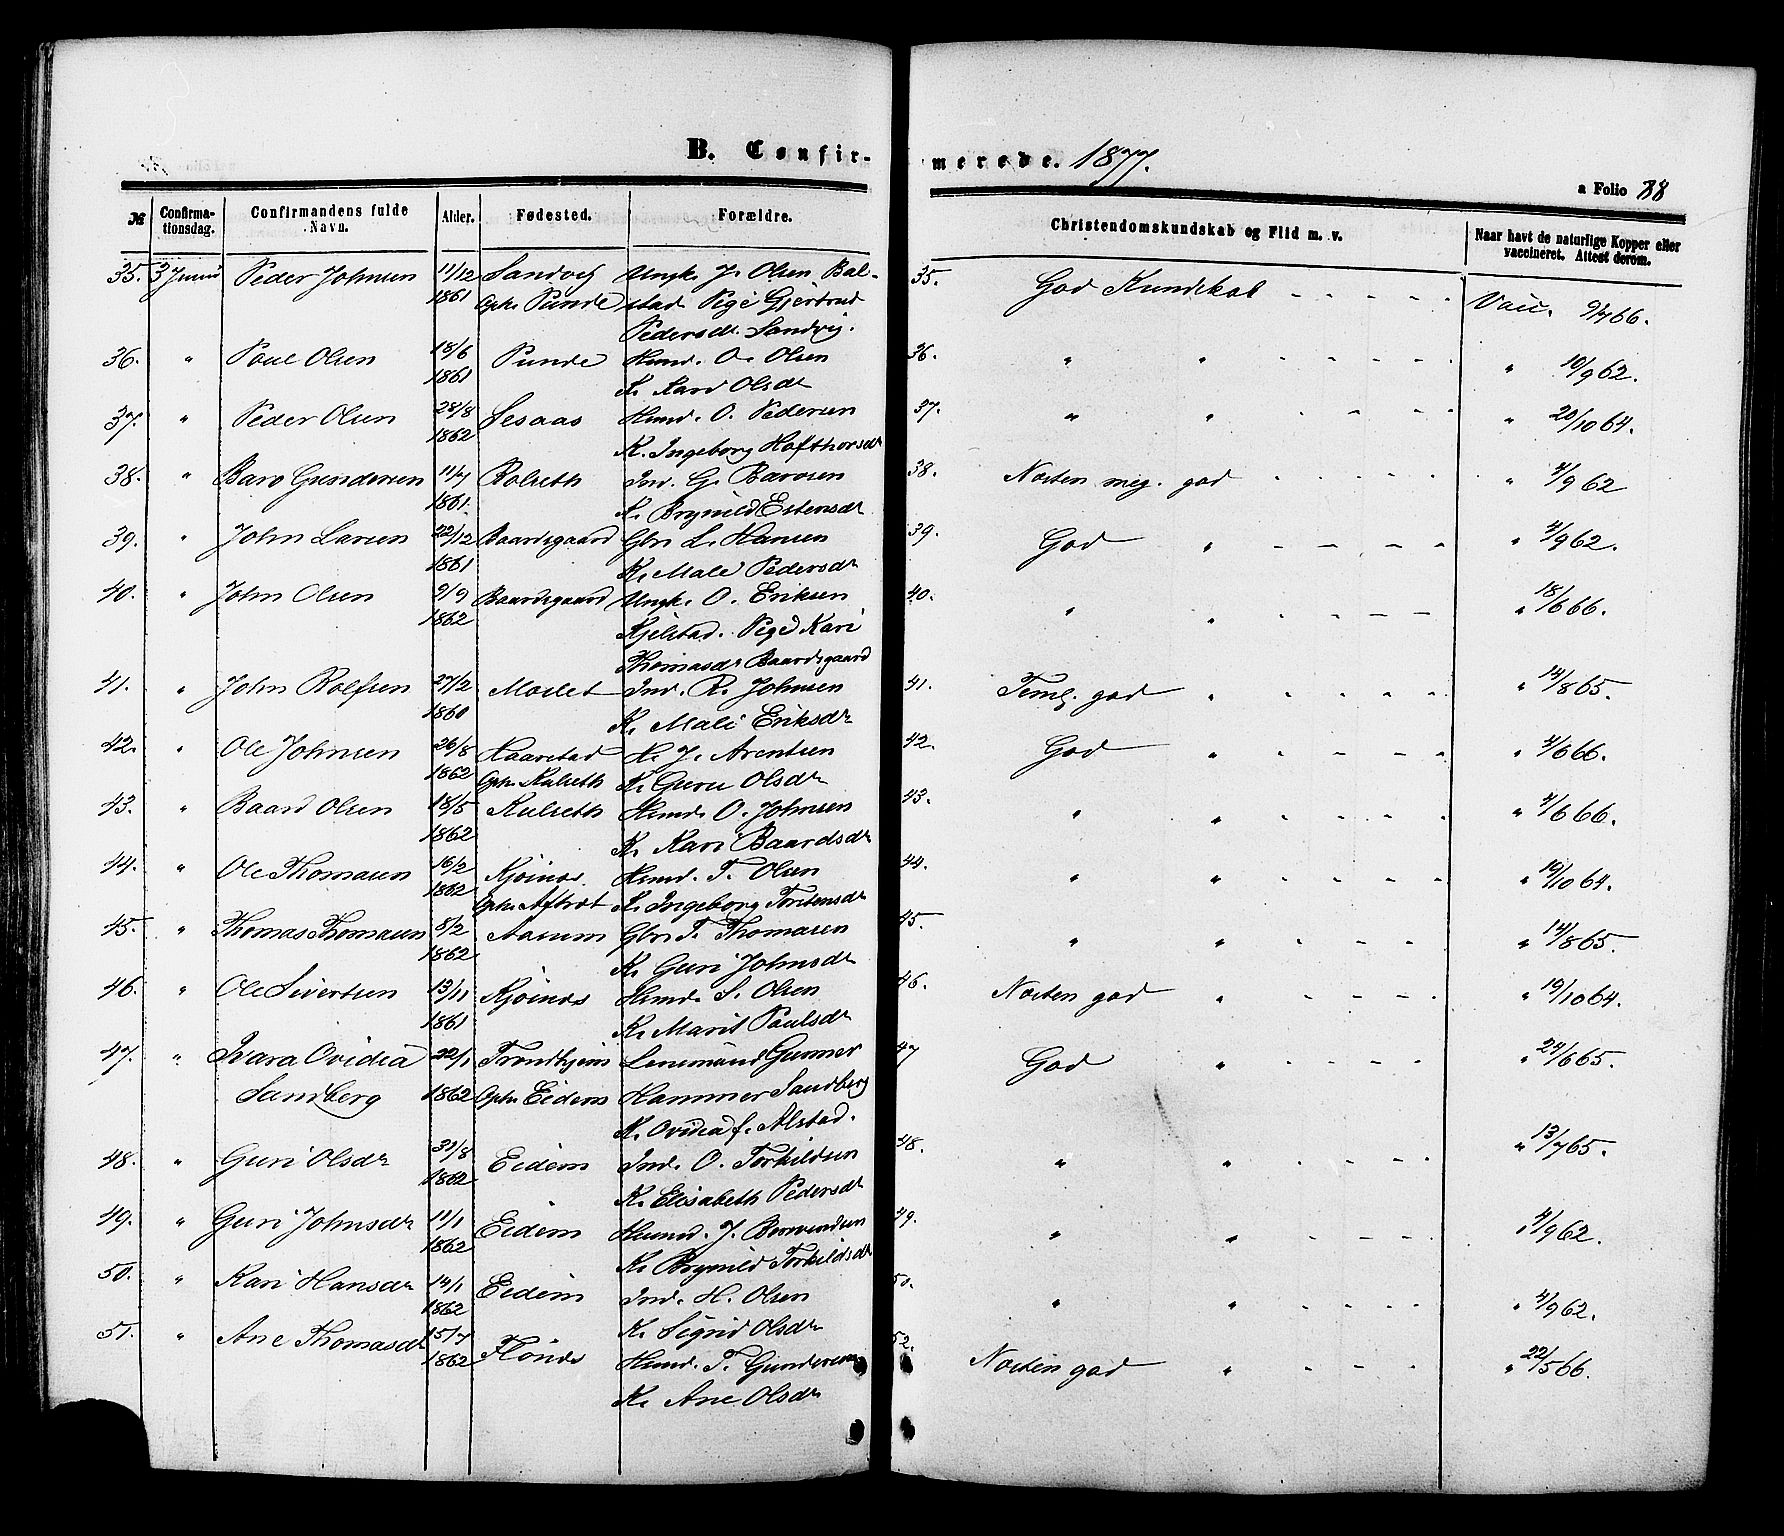 B. Confir-
№ Confirma-tionsdag. Confirmandens fulde Navn. Alder. Fødested. Forældre.
35. 3 Juni Peder Johnsen 11/12 Sandvig Ungk. J. Olsen Bal-
1861 Oph. Sunde stad Pige Gjertrud
Pedersdr. Sandvig.
36. " Paul Olsen 18/6 Sunde Husmd. O. Olsen
1861 K. Olsdr
37. " Peder Olsen 28/8 Sesaas Husmd. O. Pedersen
1862 K. Ingeborg Hafthorsdr
38. " Baro Gundersen 11/7 Rolseth Ind. G. Barosen
1861. K. Brynild Estensdr
39. " John Larsen 22/12 Baardsgaard Gbr L. Hansen
1861 K. Male Pedersdr
40. " John Olsen 9/9 Baardsgaard Ungk. O. Eriksen
1862 Kjelstad. Pige Kari
Thomasdr Baardsgaard
41. " John Rolfsen 27/2 Moslet Ind. R. Johnsen
1860 K. Mali Eriksdr
42. " Ole Johnsen 26/8 Haarstad H. J. Arentsen
1862 Oph. Kulseth K. Guru Olsdr
43. " Baard Olsen 18/5 Kulseth Husmd. O. Johnsen
1862 K. Kari Baardsdr
44. " Ole Thomasen 16/2 Kjøinaas Husmd. T. Olsen
1862 Oph. K. Ingeborg Torstensdr
45. " Thomas Thomasen 8/2 Aasum Gbr T. Thomasen
1862 K. Guri Johnsdr
46. " Ole Sivertsen 13/11 Kjøinaas Husmd. S. Olsen
1861 K. Marit Paulsdr
47. " Ivara Ovidia 22/1 Trondhjem Lensmand Gunner
Sandberg 1862 Oph. Eidem Hammer Sandberg
K. Ovidia f. Alstad.
48. " Guri Olsdr 31/8 Eidem Ind. O. Torkildsen
1862 K. Elisabeth Pedersdr
49. " Guri Johnsdr 11/1 Eidem Husmd. J.
1862 K. Brynild Torkildsdr
50. " Kari Hansdr 14/1 Eidem Ind. H. Olsen
1862 K. Sigrid Olsdr
51. " Ane Thomasdr 15/7 Flønæs Husmd. T. Gundersen
1862 K. Ane Olsdr
merede. 1877.
a Folio 88
Christendomskundskab og Flid m. v. Naar havt de naturlige Kopper eller vaccineret. Attest derom.
35. God Kundskab - - - - - Vacc. 9/7 66.
36. " " - - - - " 10/9 62.
37. " " - - - - " 20/10 64.
38. Næsten meg. god - - - - " 4/9 62
39. God " - - - - " 4/9 62.
40. " " - - - - " 18/6 66.
41. Teml. god " - - - - " 14/8 65.
42. God " - - - - " 4/6 66.
43. " " - - - - " 4/6 66.
44. " " - - - - " 19/10 64.
45. " " - - - - " 14/8 65.
46. Næsten god " - - - - " 19/10 64.
47 God " - - - - " 24/6 65.
48. " " - - - - " 13/7 65.
49. " " - - - - " 4/9 62.
50. " " - - - - " 4/9 62.
52. Næsten god " - - - - " 22/5 66.